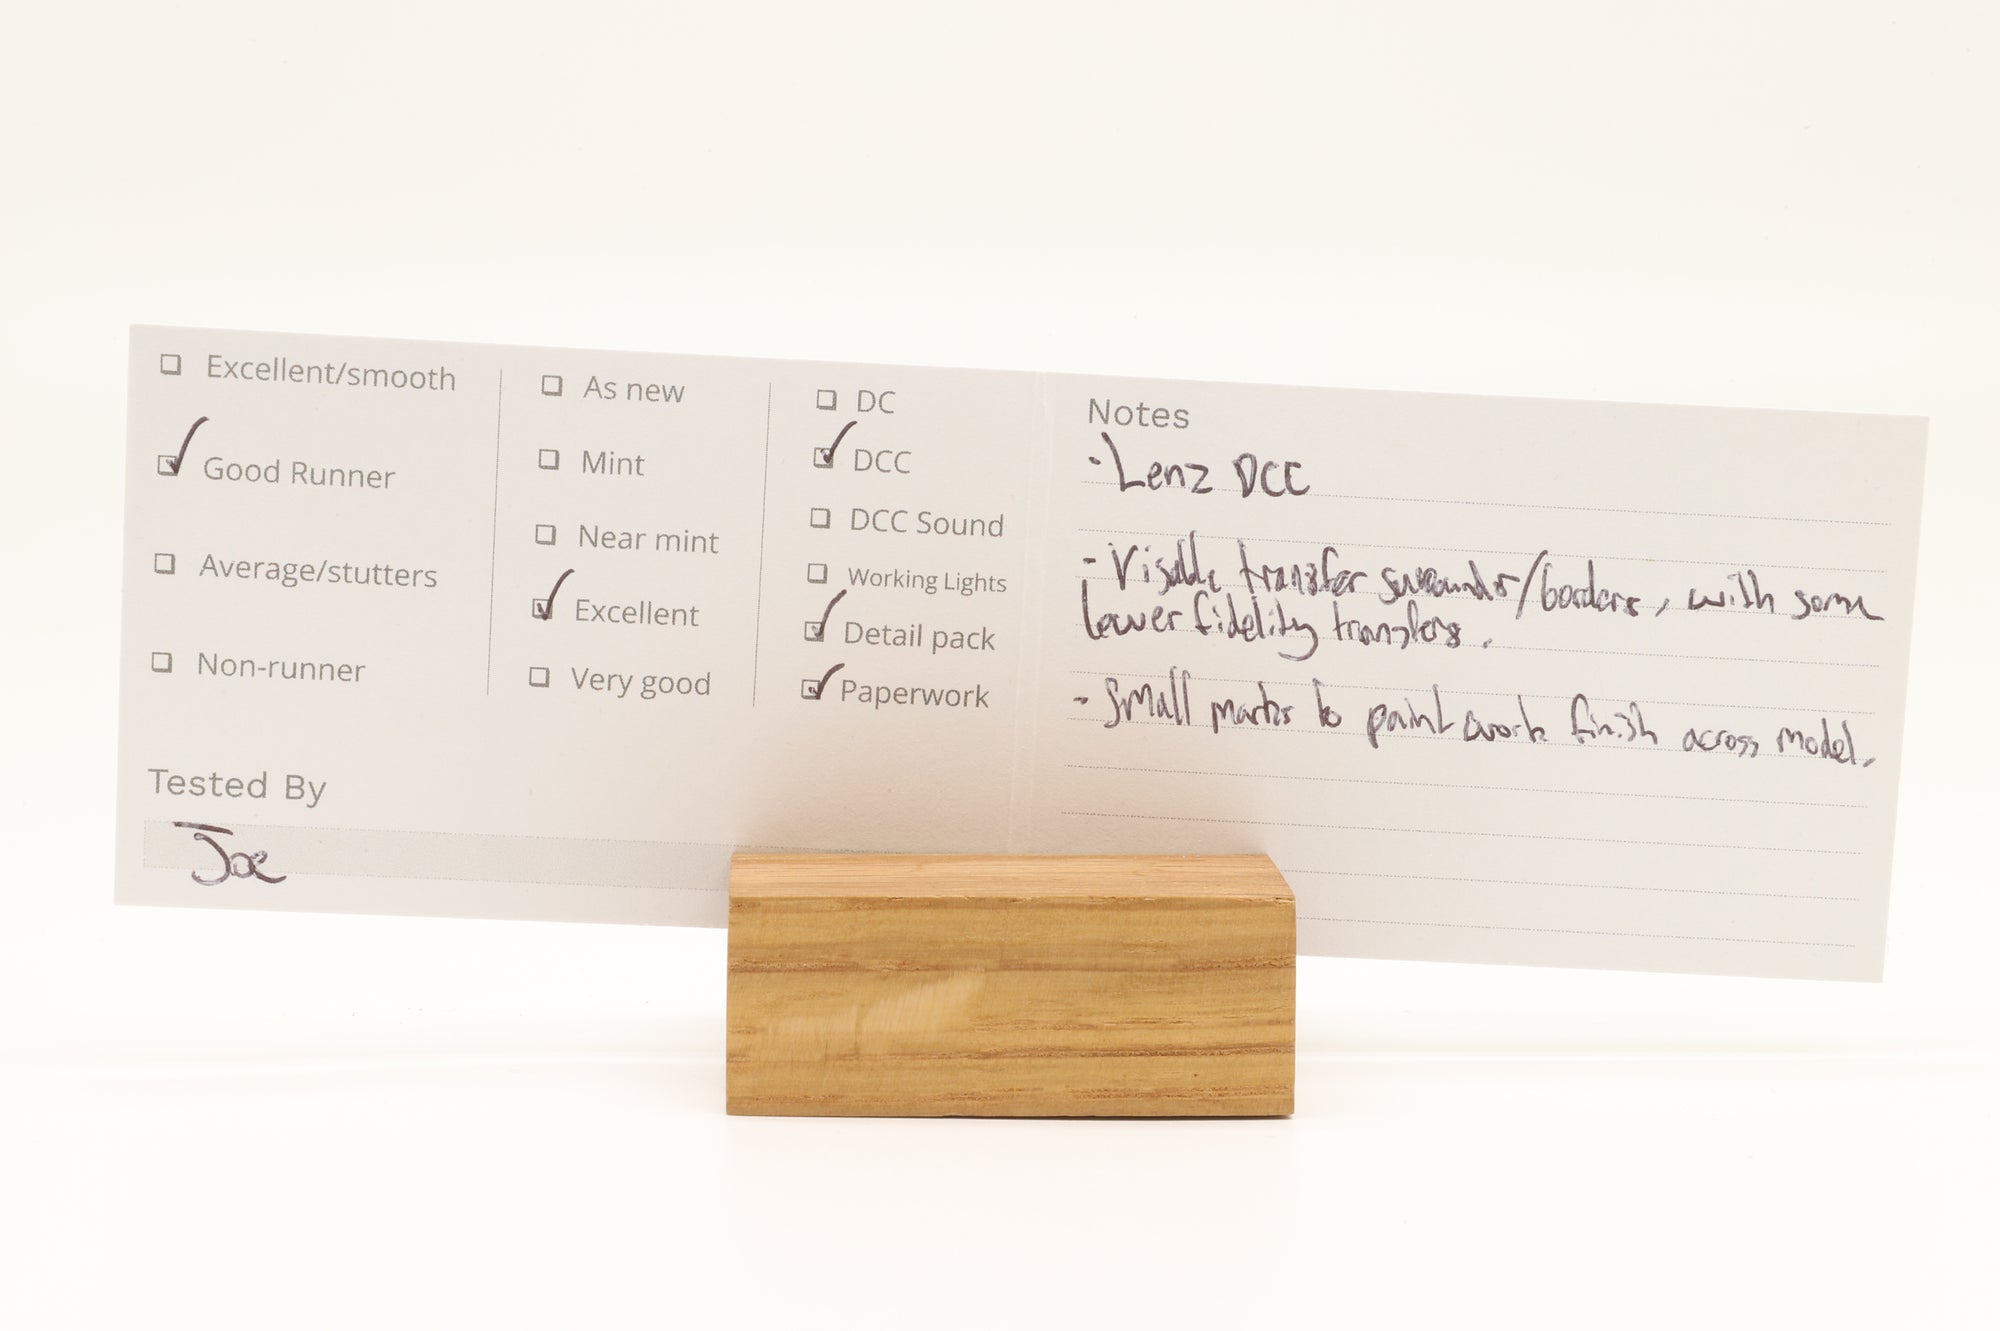 Excellent/smooth
Good Runner
Average/stutters
Non-runner
As new
Mint
Near mint
Excellent
Very good
DC
DCC
DCC Sound
Working Lights
Detail pack
Paperwork
Tested By
Joe
Notes
- Lenz DCC
- Visable transfer surrounds/borders, with some
lower fidelity transfers.
- Small marks to paint work finish across model.